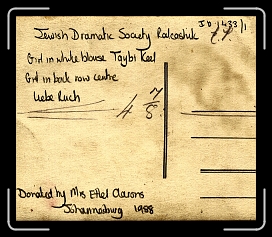 JD 1433/1
Jewish Dramatic Society Rakoshik
Girl in white blouse Taybi Keel
Girl in back row centre
Liebe Ruch
4 7/8
Donated by Mrs Ethel Aarons
Johannesburg 1988